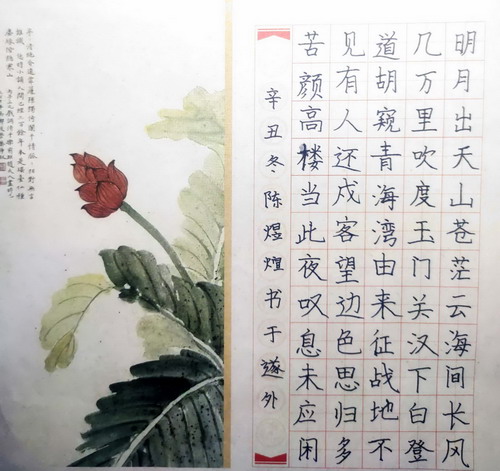 明月出天山苍茫云海间长风
几万里吹度玉门关汉下白登
道胡窥青海湾由来征战地不
见有人还戍客望边色思归多
苦颜高楼当此夜叹息未应闲
辛丑冬陈煜煊书于遂外